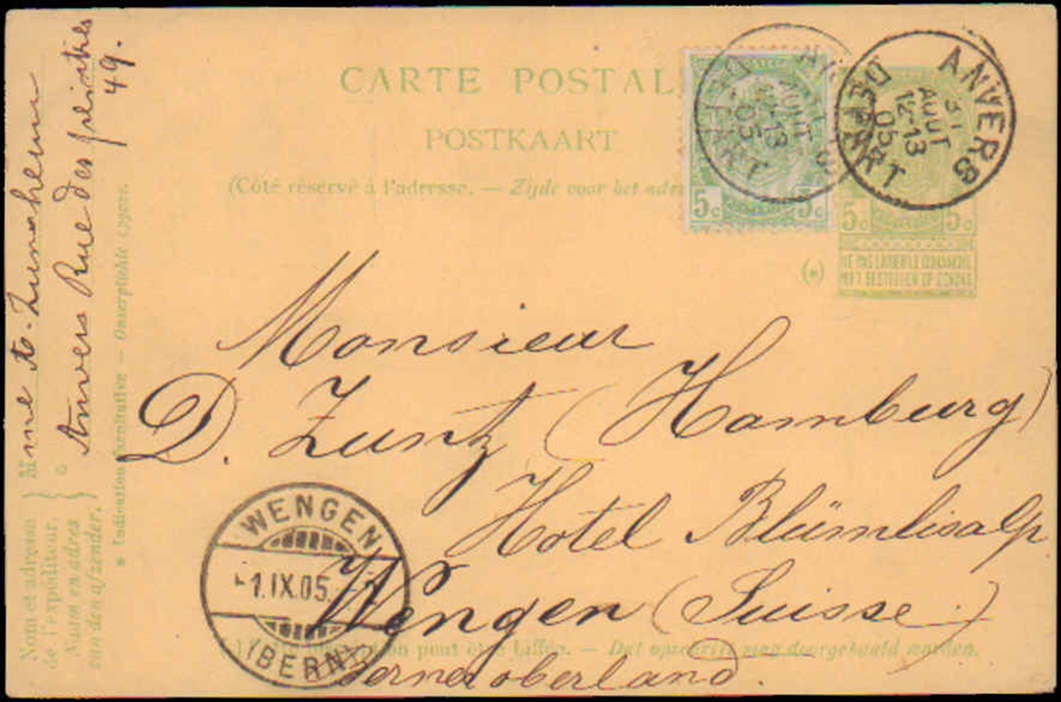 CARTE POSTAL
POSTKAART
(Côté réservé à l'adresse. — Zijde voor het adre
5c 5c
ANVERS
31
AOUT
12-13
05
DÉPART
5c 5c
NE PAS LIVRER LE DIMANCHE
NIET BESTELLEN OP ZONDAG
(*)
Monsieur
D. Zuntz (Hamburg)
Hotel Blümlisalp
Wengen (Suisse)
Berner oberland.
WENGEN
1.IX.05.
(BERN)
peut être biffée. — Dat opschrift mag doorgehaald worden.
Nom et adresse
de l'expéditeur.
Naam en adres
van den afzender.
Mme
Anvers Rue des
49.
* Indication facultative — Onverplichte opgave.